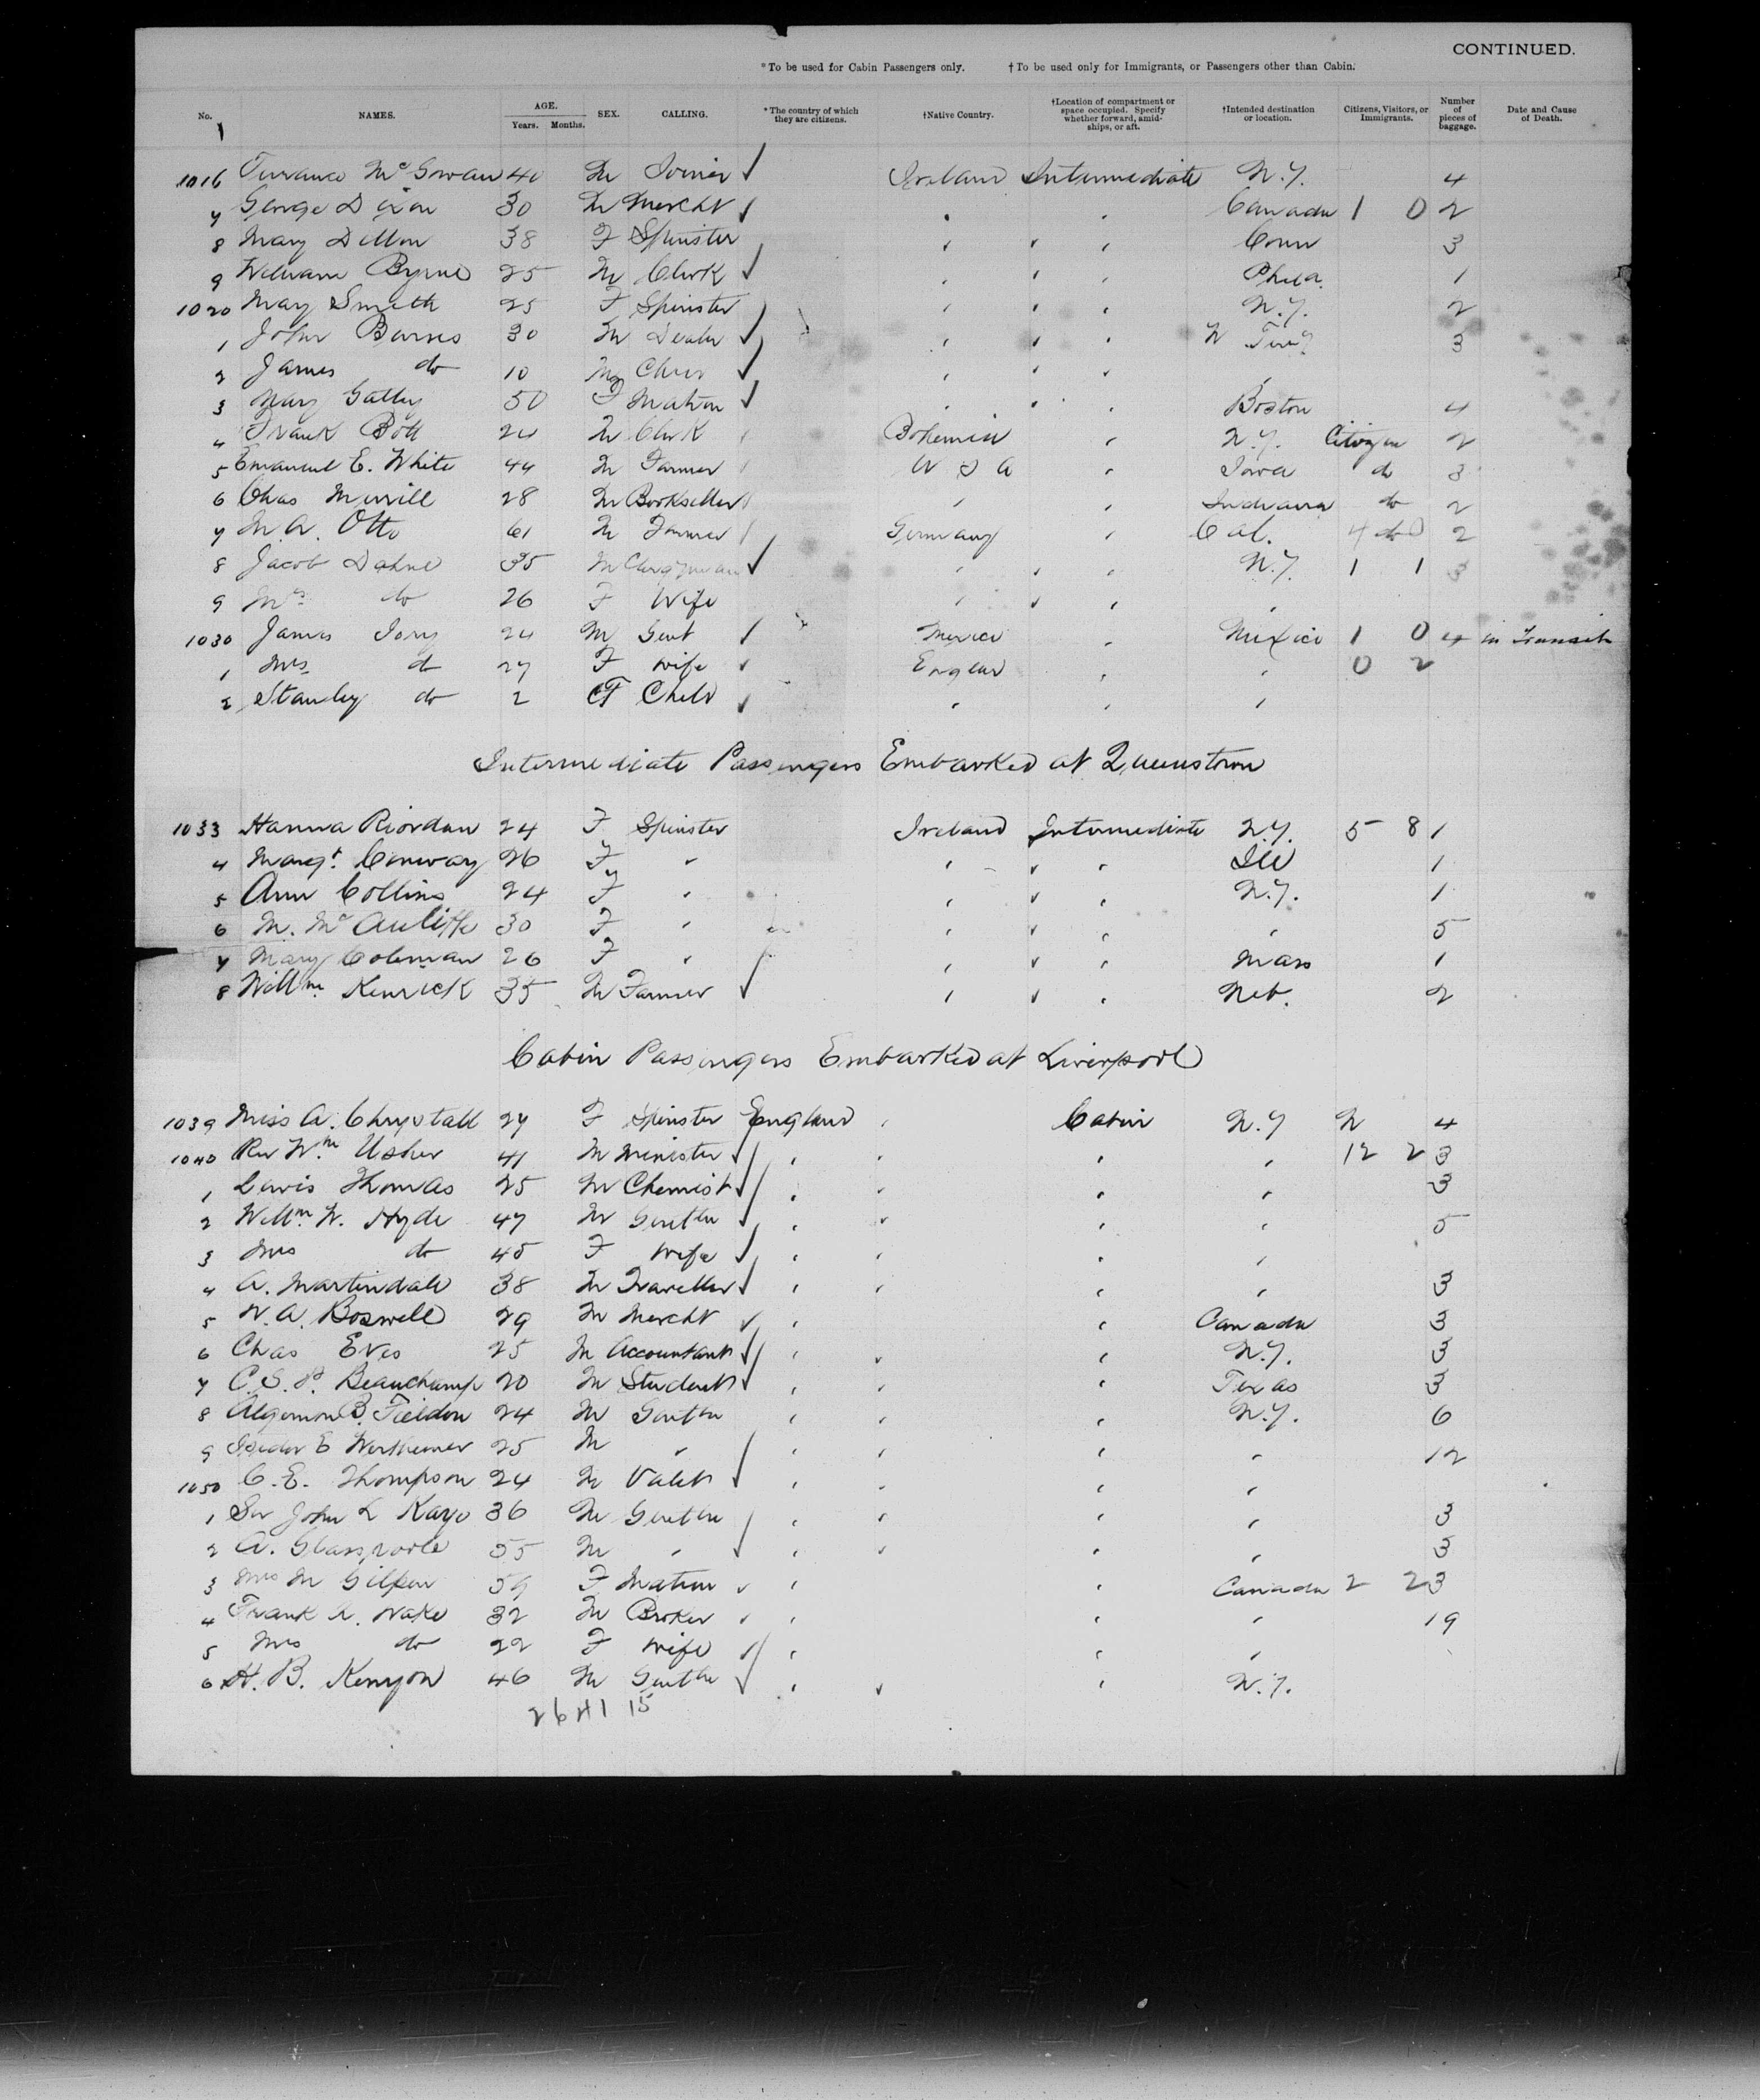 CONTINUED.
*To be used for Cabin Passengers only. †To be used only for Immigrants, or Passengers other than Cabin.
No. NAMES. AGE. Years. Months. SEX. CALLING. *The country of which they are citizens. †Native Country. †Location of compartment or space occupied. Specify whether forward, amidships, or aft. †Intended destination or location. Citizens, Visitors, or Immigrants. Number of pieces of baggage. Date and Cause of Death.
1016 Terrance McGowan 40 M Joiner Ireland Intermediate N.Y. 4
7 George Dixon 30 M Mercht " " Canada 1 0 2
8 Mary Dillon 38 F Spinster " " " Conn 3
9 William Byrne 25 M Clerk " " " Phila. 1
1020 Mary Smith 25 F Spinster " " " N.Y. 2
1 John Barnes 30 M Dealer " " " 3
2 James do 10 M " " " "
3 Mary Gatley 50 F Matron " " " Boston 4
4 Frank Bott 24 M Clerk Bohemia " N.Y. Citizen 2
5 Emanuel E. White 44 M Farmer U S A " Iowa do 3
6 Chas Merrill 28 M Bookseller " " Indiana do 2
7 M. A. Otto 61 M Farmer Germany " Cal. 4 do 0 2
8 Jacob Dahne 35 M Clergyman " " " N.Y. 1 1 3
9 Mrs do 26 F Wife " " " "
1030 James 24 M Gent Mexico " Mexico 1 0 4 in Transit
1 Mrs do 27 F Wife England " " 0 2
2 Stanley do 2 F Child " " "
Intermediate Passengers Embarked at Queenstown
1033 Hanna Riordan 24 F Spinster Ireland Intermediate N.Y. 5 8 1
4 Margt. Conway 26 F " " " " Ill 1
5 Ann Collins 24 F " " " " N.Y. 1
6 M. McAuliffe 30 F " " " " " 5
7 Mary Coleman 26 F " " " " Mass 1
8 Willm. Kenrick 35 M Farmer " " " Neb. 2
Cabin Passengers Embarked at Liverpool
1039 Miss A. Chrystall 27 F Spinster England " Cabin N.Y 4
1040 Rev Wm Usher 41 M Minister " " " " 12 2 3
1 Lewis Thomas 25 M Chemist " " " " 3
2 Willm. W. Hyde 47 M Gentln " " " " 5
3 Mrs do 45 F Wife " " " "
4 A. Martindale 38 M Traveller " " " " 3
5 W. A. Boswell 29 M Mercht " " Canada 3
6 Chas Eves 25 M Accountant " " " N.Y. 3
7 C. S. P. Beauchamp 20 M Student " " " Texas 3
8 Algernon B. Fieldon 24 M Gentln " " " N.Y. 6
9 Isidor E Wertheimer 25 M " " " " " 12
1050 C. E. Thompson 24 M Valet " " " "
1 Sir John L Kaye 36 M Gentln " " " " 3
2 A. Glasspoole 55 M " " " " " 3
3 Mrs M Gilpin 59 F Matron " " Canada 2 2 3
4 Frank A. Wake 32 M Broker " " " 19
5 Mrs do 22 F Wife " " "
6 H. B. Kenyon 46 M Gentln " " " N.Y.
26 41 15